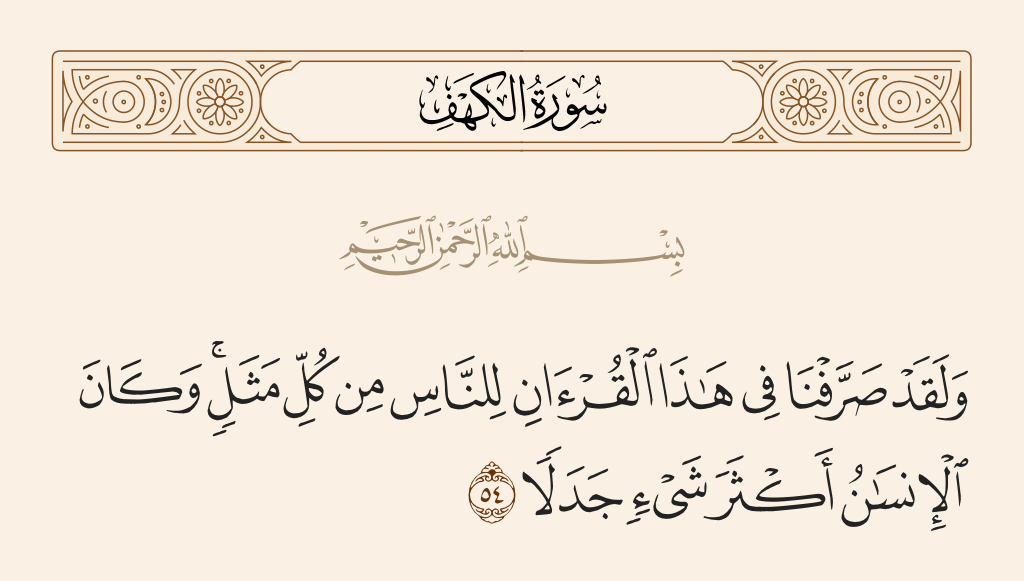 سُورَةُ الكَهۡفِ
بِسۡمِ ٱللَّهِ ٱلرَّحۡمَٰنِ ٱلرَّحِيمِ
وَلَقَدۡ صَرَّفۡنَا فِي هَٰذَا ٱلۡقُرۡءَانِ لِلنَّاسِ مِن كُلِّ مَثَلٖۚ وَكَانَ
ٱلۡإِنسَٰنُ أَكۡثَرَ شَيۡءٖ جَدَلٗا ٥٤